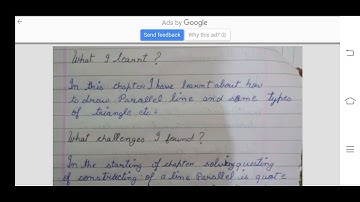 Ads by Google
Send feedback
Why this ad?
What I learnt?
In this chapter I have learnt about how
to draw Parallel line and some types
of triangle etc.
What challenges I found?
In the starting of chapter solving questing
of constructing of a line Parallel is quote